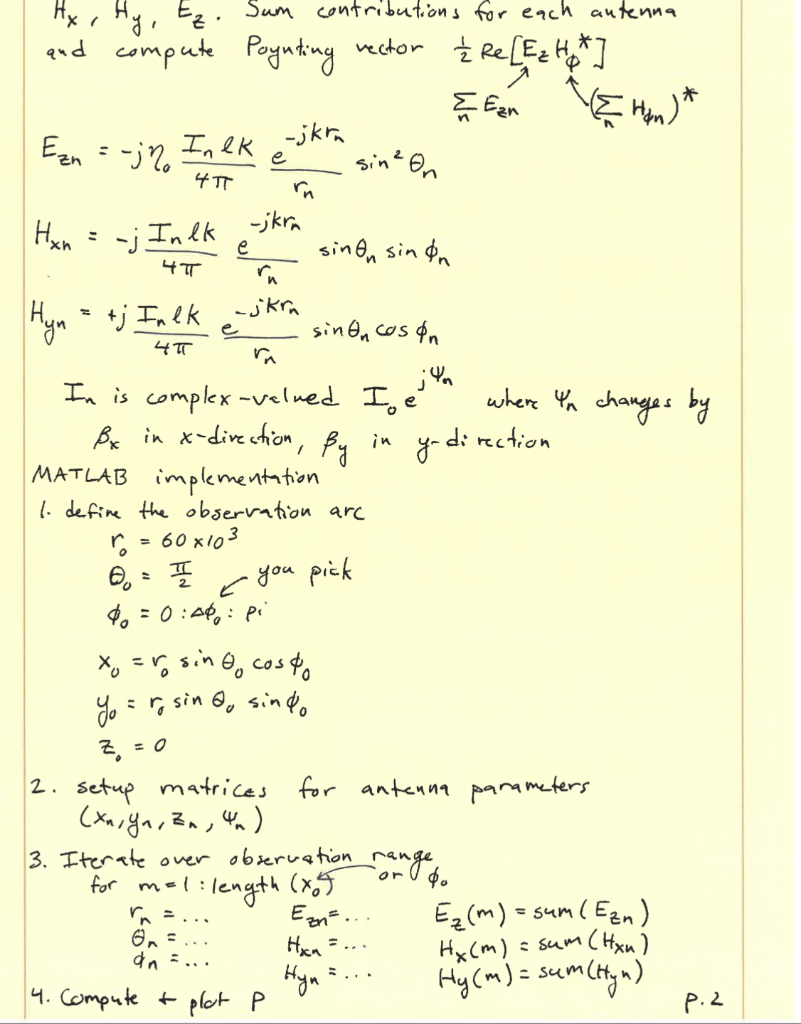 Hx, Hy, Ez. Sum contributions for each antenna
and compute Poynting vector ½ Re[Ez Hφ*]
Σn Ezn (Σn Hφn)*
Ezn = -jη₀ (In l k / 4π) (e^(-jkrn) / rn) sin² θn
Hxn = -j (In l k / 4π) (e^(-jkrn) / rn) sin θn sin φn
Hyn = +j (In l k / 4π) (e^(-jkrn) / rn) sin θn cos φn
In is complex-valued I₀ e^(jψn) where ψn changes by
βx in x-direction, βy in y-direction
MATLAB implementation
1. define the observation arc
r₀ = 60 x 10³
θ₀ = π/2 you pick
φ₀ = 0 : Δφ₀ : pi
x₀ = r₀ sin θ₀ cos φ₀
y₀ = r₀ sin θ₀ sin φ₀
z₀ = 0
2. setup matrices for antenna parameters
(xn, yn, zn, ψn)
3. Iterate over observation range
for m=1 : length (x₀) or φ₀
rn = ... Ezn = ... Ez(m) = sum(Ezn)
θn = ... Hxn = ... Hx(m) = sum(Hxn)
φn = ... Hyn = ... Hy(m) = sum(Hyn)
4. Compute + plot P p.2